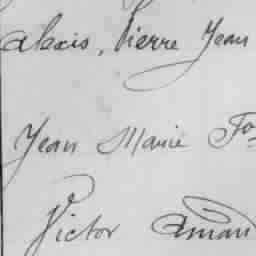 Alexis, Pierre Jean
Jean Marie Fo
Victor Aman